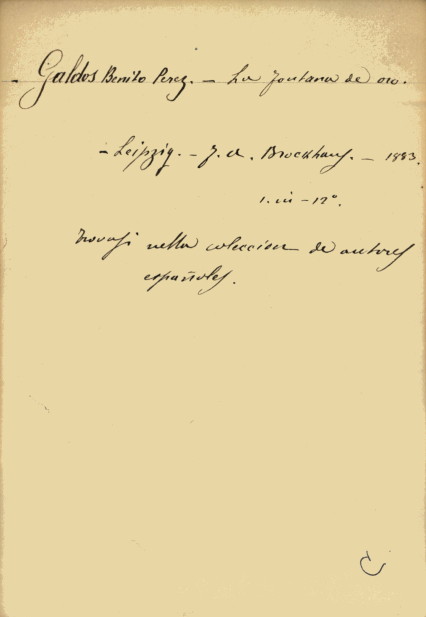 - Galdos Benito Perez. - La fontana de oro.
- Leipzig. - F. A. Brockhaus. - 1883.
1. in - 12°.
Trovasi nella coleccion de autores
españoles.
C